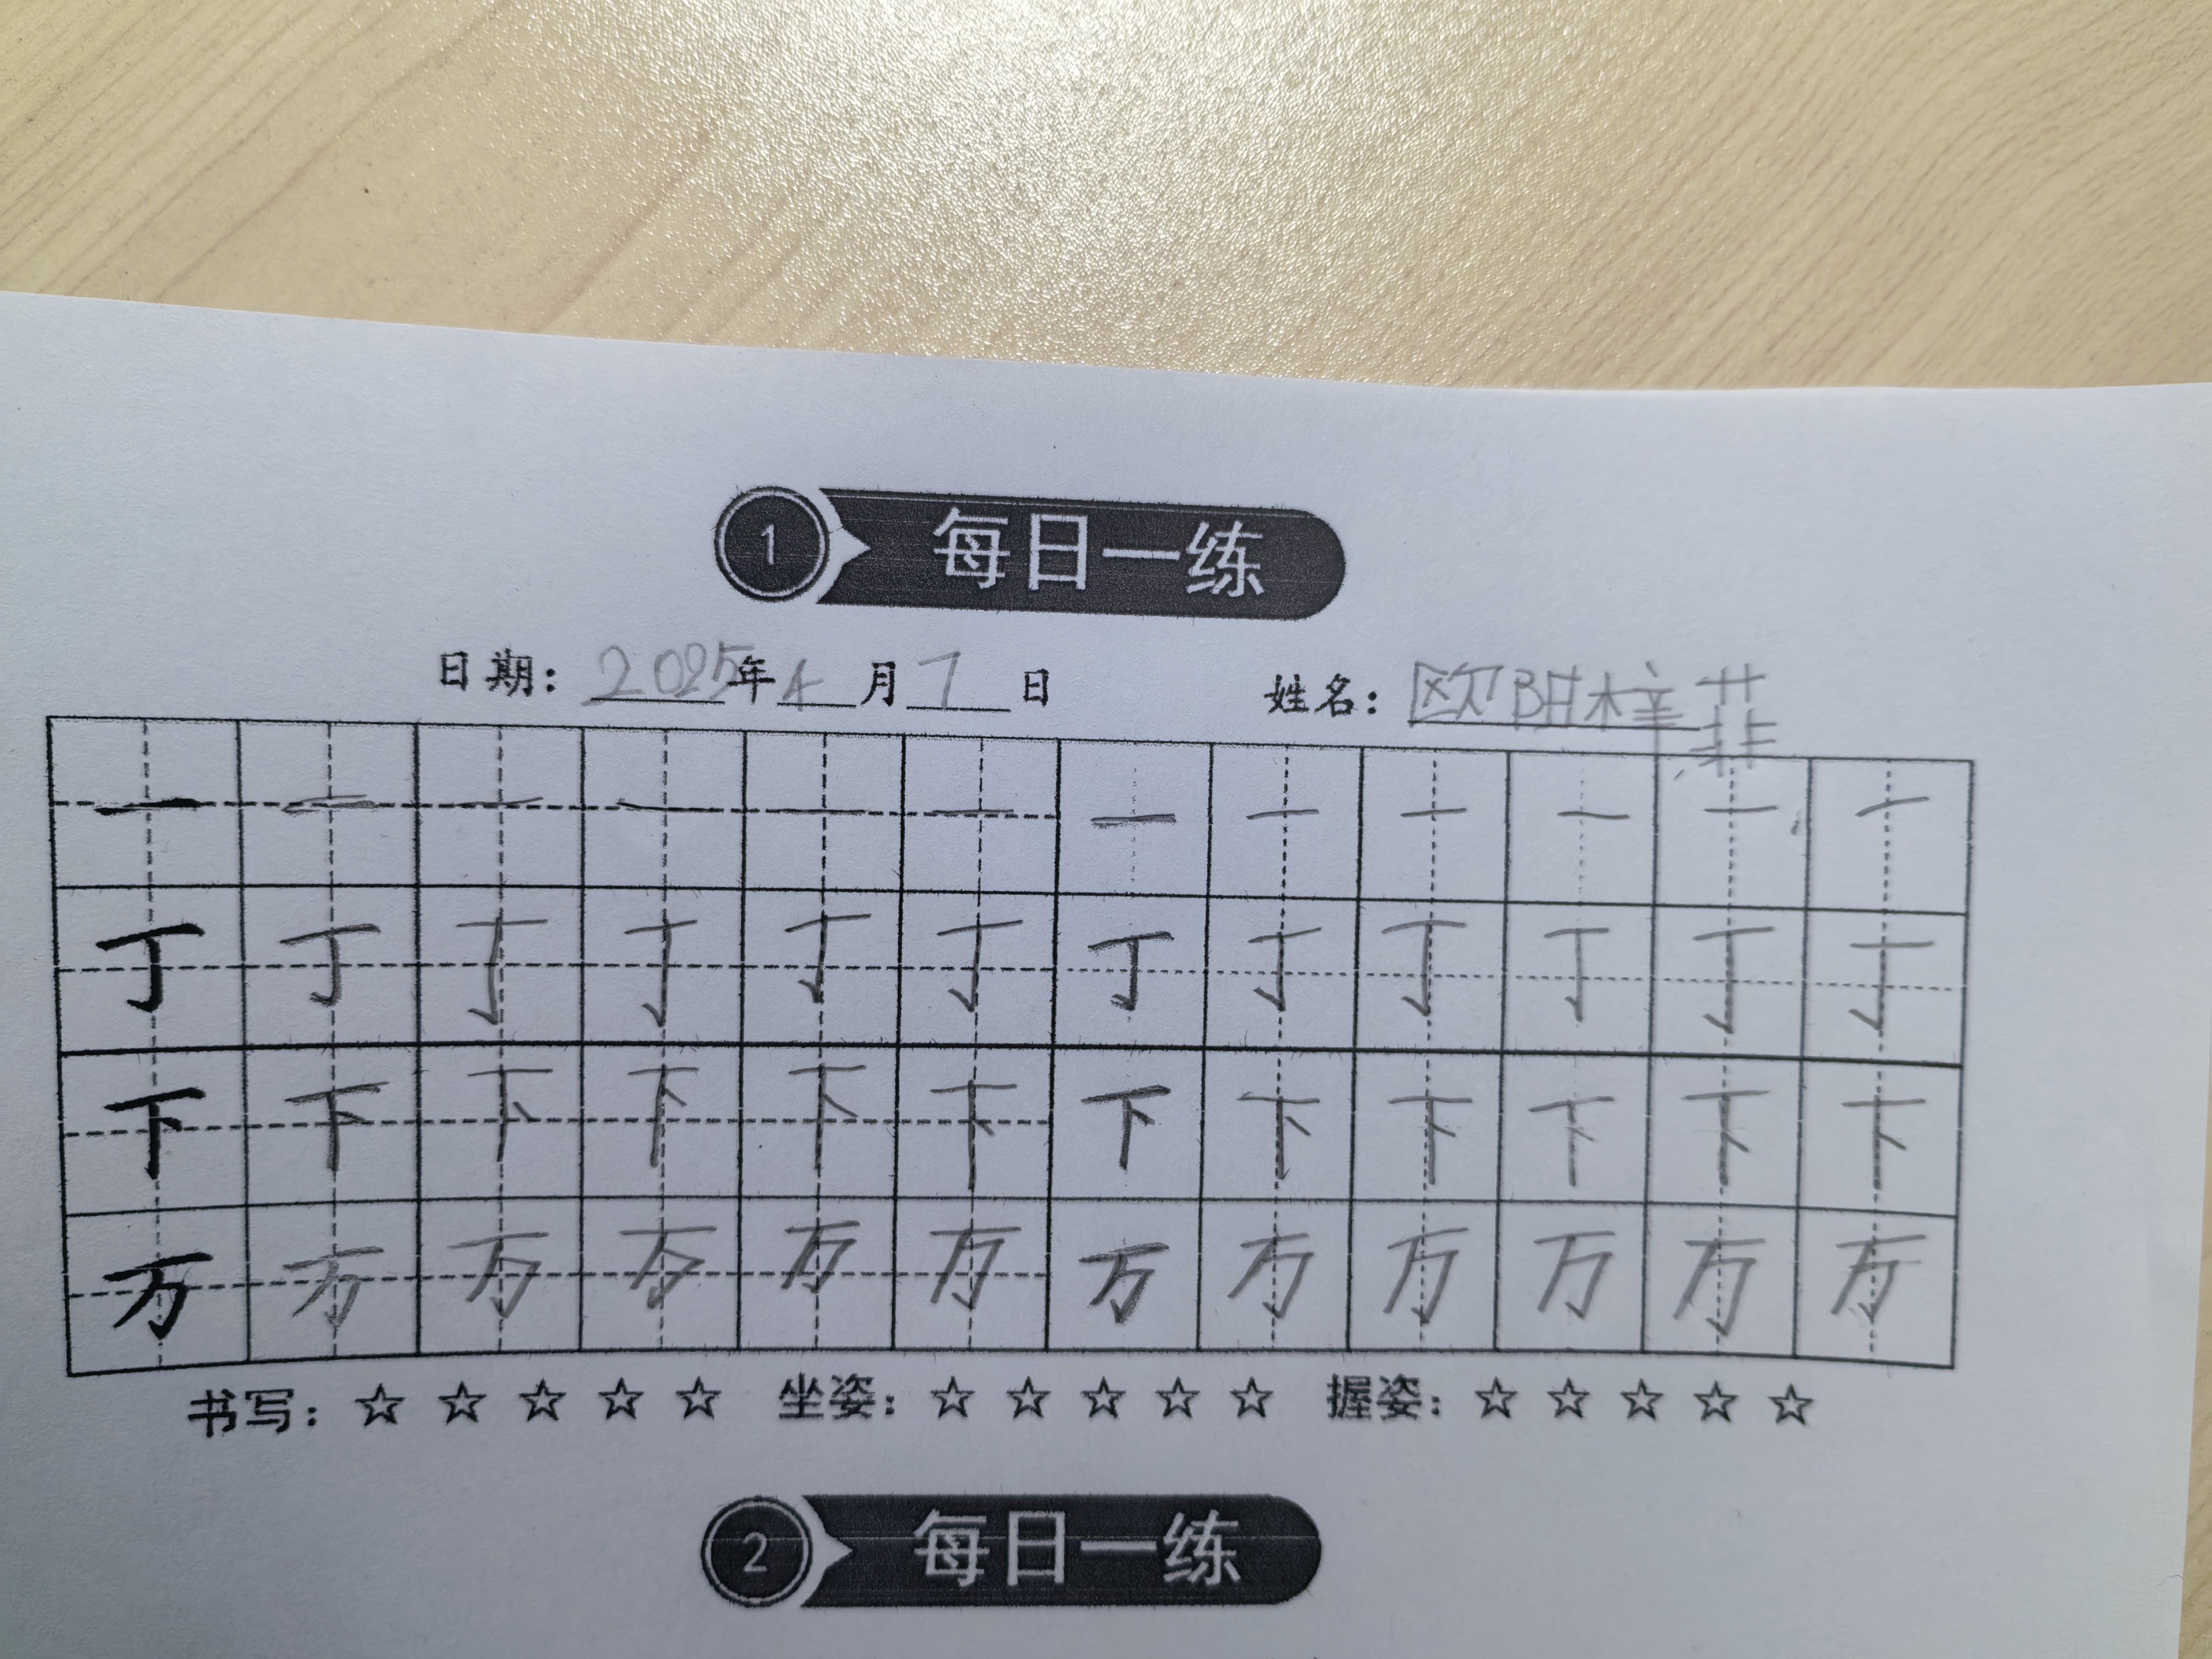 1 每日一练
日期：2025年4月7日 姓名：欧阳梓菲
一 一 一 一 一 一 一 一 一 一 一 一
丁 丁 丁 丁 丁 丁 丁 丁 丁 丁 丁 丁
下 下 下 下 下 下 下 下 下 下 下 下
万 万 万 万 万 万 万 万 万 万 万 万
书写：☆ ☆ ☆ ☆ ☆ 坐姿：☆ ☆ ☆ ☆ ☆ 握姿：☆ ☆ ☆ ☆ ☆
2 每日一练